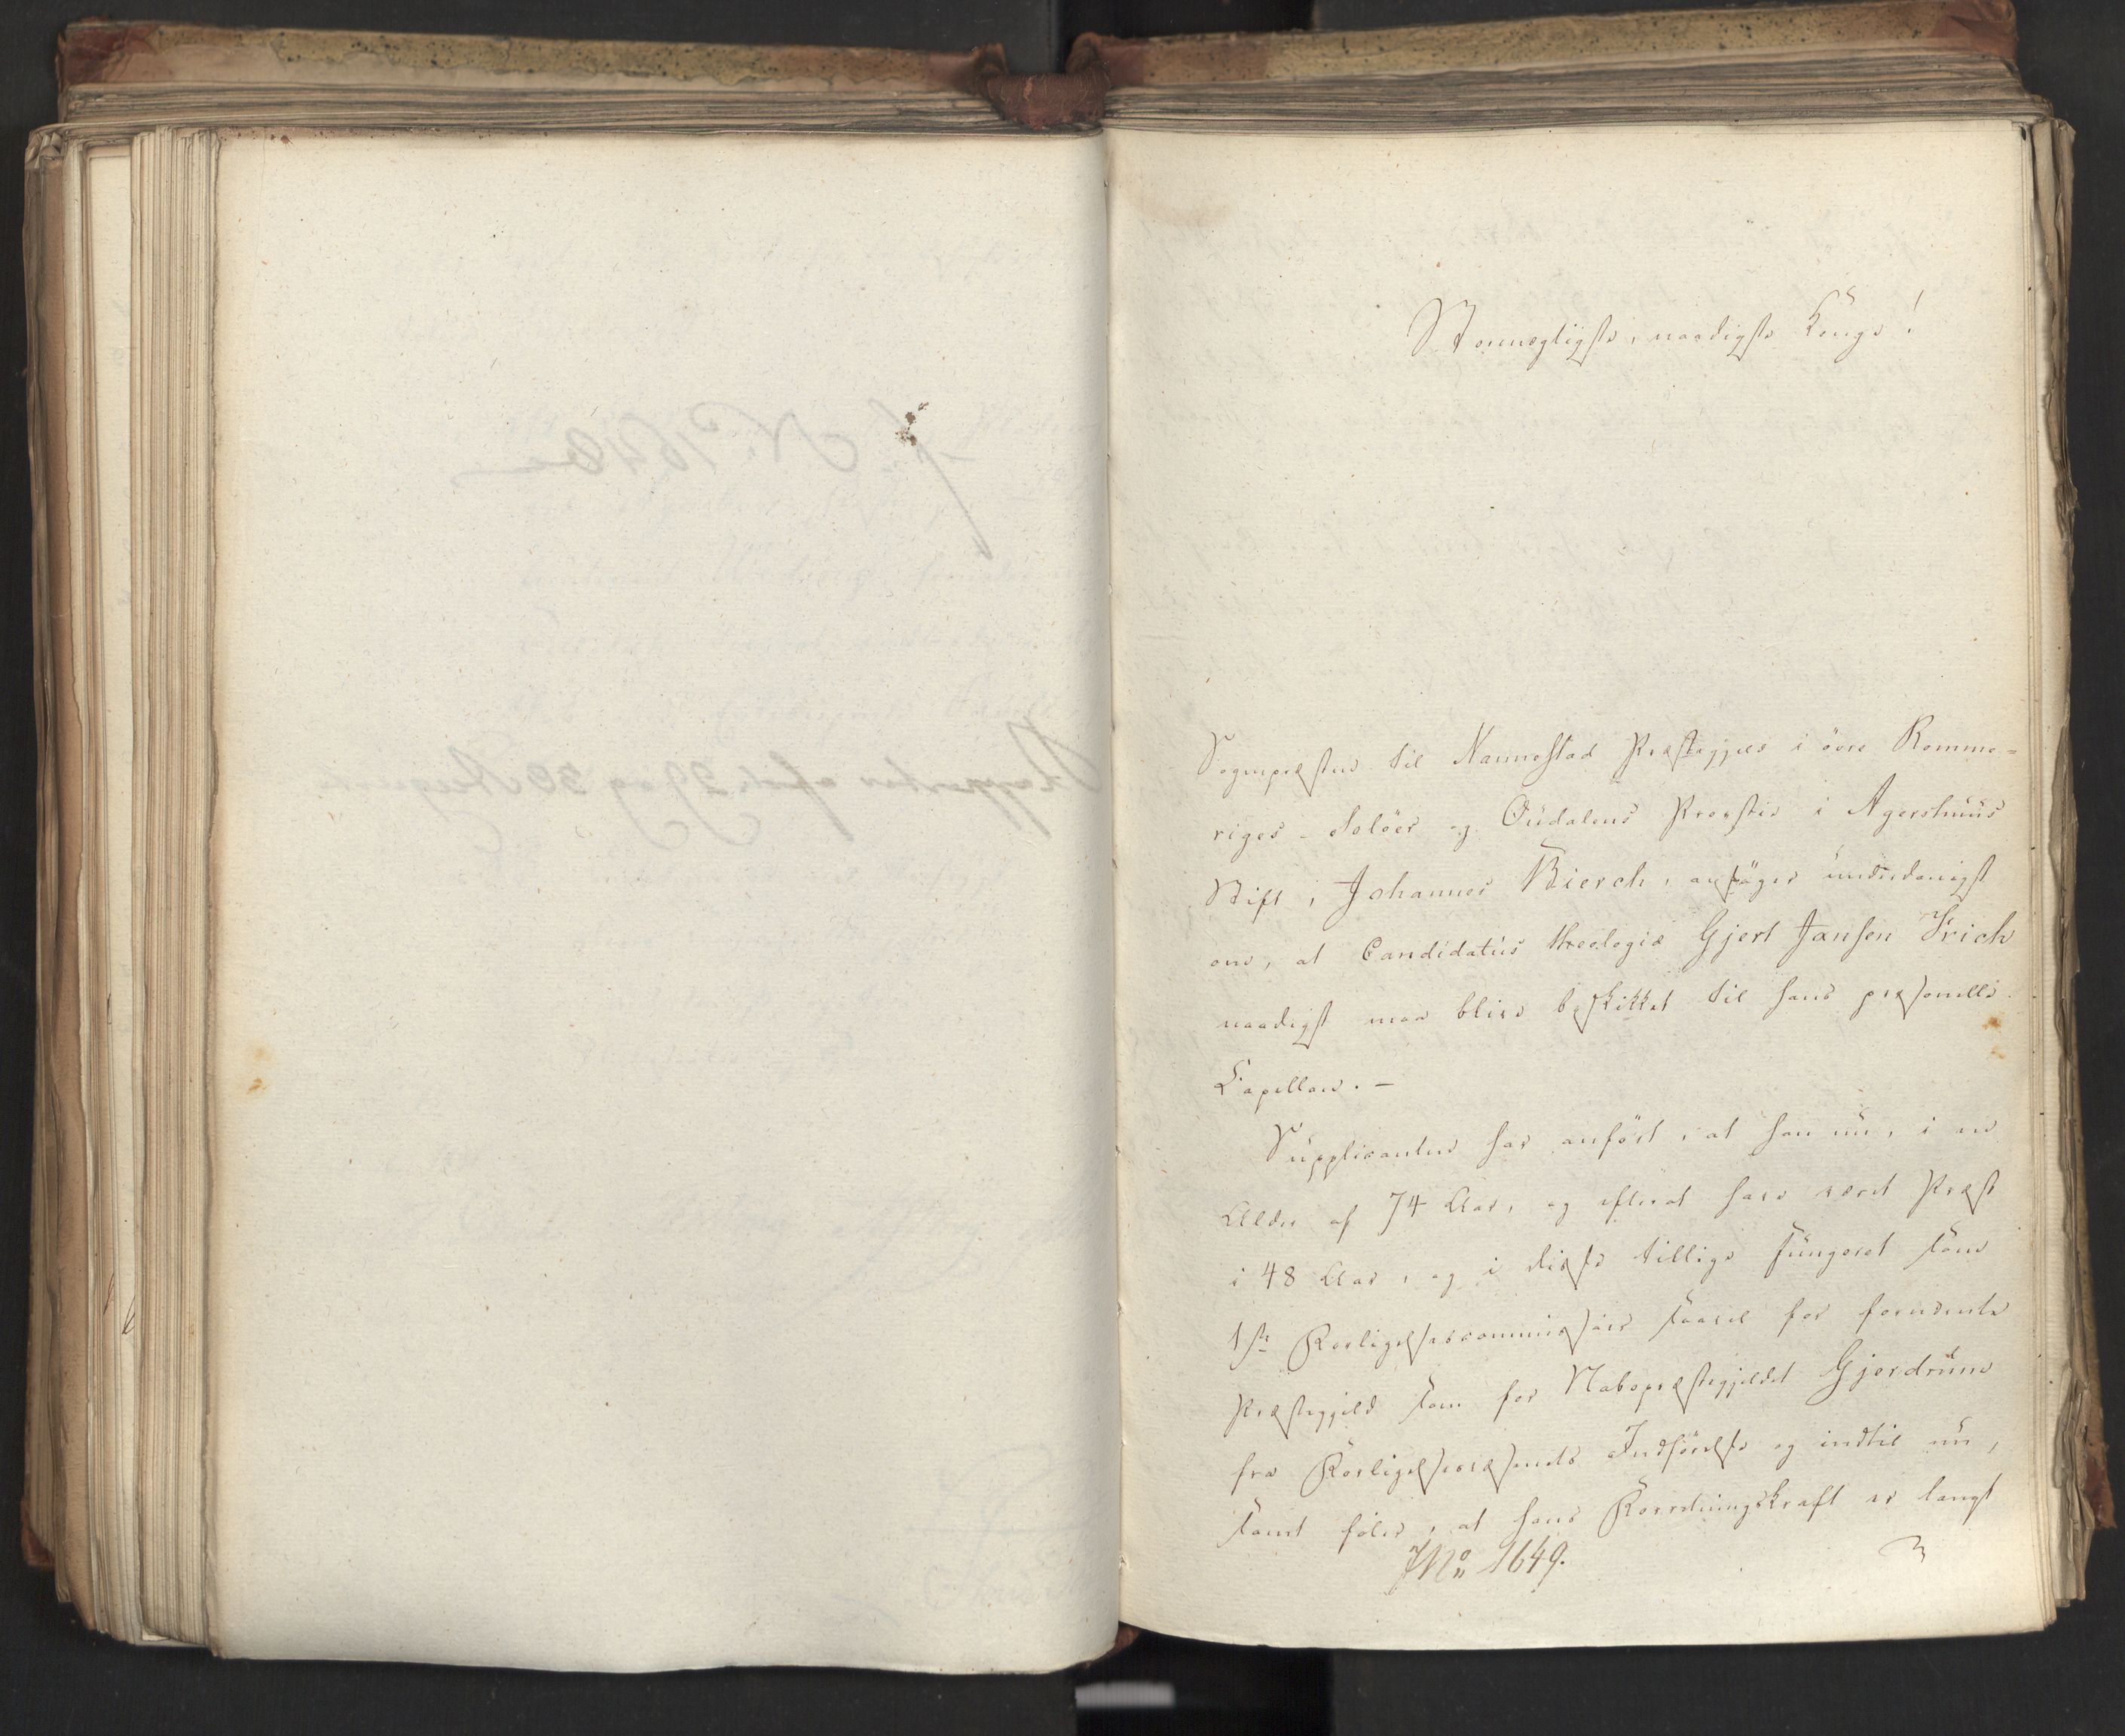 Stormægtigste, naadigste Konge!
Sognepræsten til Nannestad Præstegjeld i övre Romme-
riges- Solöer og Oudalens Provstie i Agershuus
Stift, Johannes Bierch, ansöger underdanigst
om, at Candidatus theologiæ Gjert Jansen Frich
naadigst maa blive beskikket til hans personelle
Capellan. -
Supplicanten har anfört, at han nu, i en
Alder af 74 Aar, og efterat have været Præst
i 48 Aar, og i disse tillige fungeret som
1ste Forligelsescommissair saavel for forneævnte
Præstegjeld som for Nabopræstegjeldet Gjerdrum
fra Forligelsesvæsenets Indförelse og indtil nu,
samt föler, at hans Forretningskraft er langt
J No 1649.